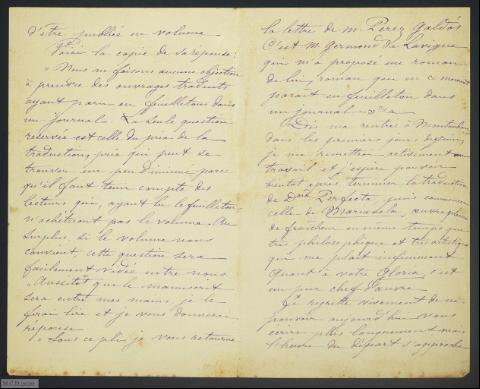 d'être publiée en volume
Voici la copie de sa réponse:
"Nous ne faisons aucune objection
à prendre des ouvrages traduits
ayant paru en feuilletons dans
un journal. La seule question
réservée est celle du prix de la
traduction, prix qui peut se
trouver un peu diminué parce
qu'il faut tenir compte des
lecteurs qui, ayant lu le feuilleton
n'achètront pas le volume. Au
surplus, si le volume nous
convient, cette question sera
facilement vidée entre nous
"Aussitôt que le manuscrit
sera entre mes mains je le
ferai lire et je vous donnerai
réponse
"Sous ce pli je vous retourne
la lettre de M. Perez Galdós
C'est M. Germond de Lavigne
qui m'a proposé un roman
de lui, roman que en ce moment
paraît en feuilleton dans
un journal
Dès ma rentrée à Montauban,
dans les premiers jours de juin,
je me remettrai activement au
travail et j'espère pouvoir
bientôt après terminer la traduction
de Dona Perfecta puis commencer
celle de Marianela, œuvre pleine
de fraîcheur en même temps que
très philosophique et très artistique
que me plaît infiniment
Quant à votre Gloria, c'est
un pur chef d'œuvre
Je regrette vivement de ne
pouvoir aujourd'hui vous
écrire plus longuement mais
l'heure du départ s'approche
M.C.D. 2020